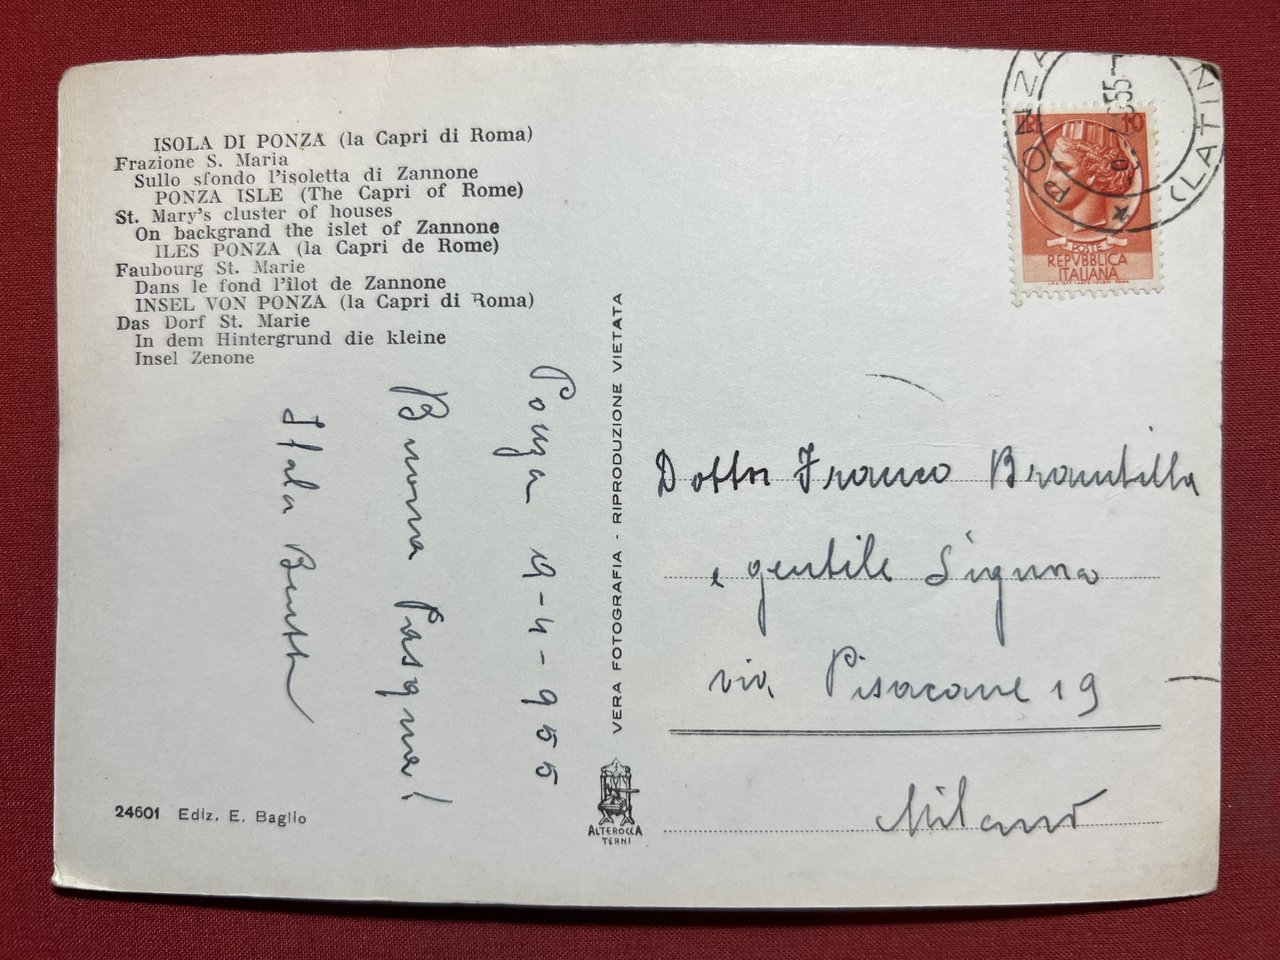 ISOLA DI PONZA (la Capri di Roma)
Frazione S. Maria
Sullo sfondo l'isoletta di Zannone
PONZA ISLE (The Capri of Rome)
St. Mary's cluster of houses
On backgrand the islet of Zannone
ILES PONZA (la Capri de Rome)
Faubourg St. Marie
Dans le fond l'îlot de Zannone
INSEL VON PONZA (la Capri di Roma)
Das Dorf St. Marie
In dem Hintergrund die kleine
Insel Zenone
Ponza 9-4-955
Buona Pasqua!
Itala
24601 Ediz. E. Baglio
VERA FOTOGRAFIA - RIPRODUZIONE VIETATA
ALTEROCCA
TERNI
PONZA
(LATIN
55
10
POSTE
REPVBBLICA
ITALIANA
Dottor Franco Brambilla
e gentile Signora
via Pisacane 19
Milano